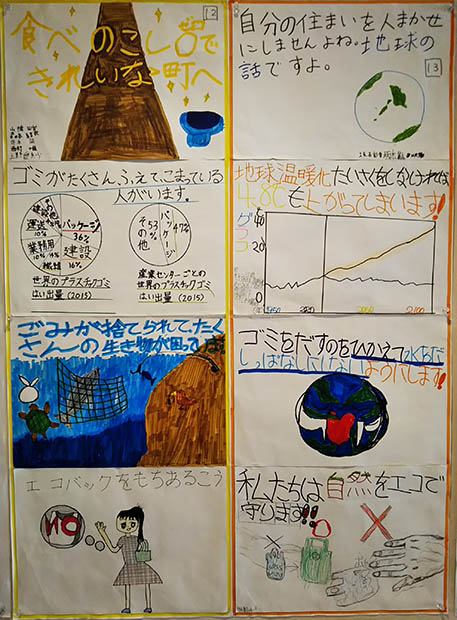 12
食べのこし0で
きれいな町へ
自分の住まいを人まかせ
にしませんよね。地球の
話ですよ。
13
ゴミがたくさんふえて、こまっている
人がいます。
運送
10%
パッケージ
36%
業務用
建設
16%
世界のプラスチックゴミ
はい出量(2015)
パッケージ
47%
その他
53%
産業センターごとの
世界のプラスチックゴミ
はい出量(2015)
地球温暖化たいさくをしなければ
4.8℃も上がってしまいます!
グラフ
40
20
0
1950
2050
2100
ごみが捨てられて、たく
さんの生き物が困っている
ゴミをだすのをひかえて
しっぱなしにしないようにします!
エコバックをもちあるこう
NO
私たちは自然をエコで
守ります!!